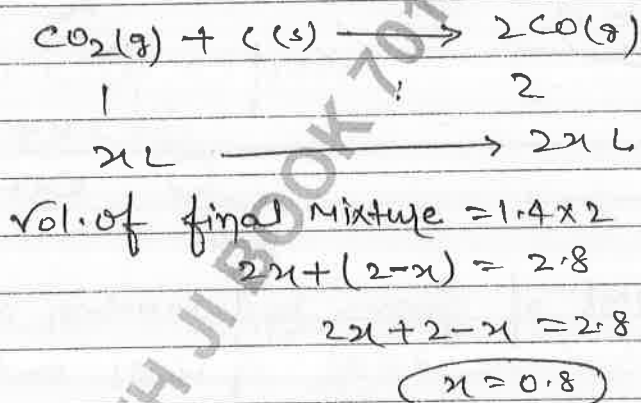 CO₂(g) + C(s) ⟶ 2CO(g)
1 : 2
x L ⟶ 2x L
Vol. of final Mixture = 1.4 × 2
2x + (2-x) = 2.8
2x + 2 - x = 2.8
x = 0.8
H JI BOOK 701